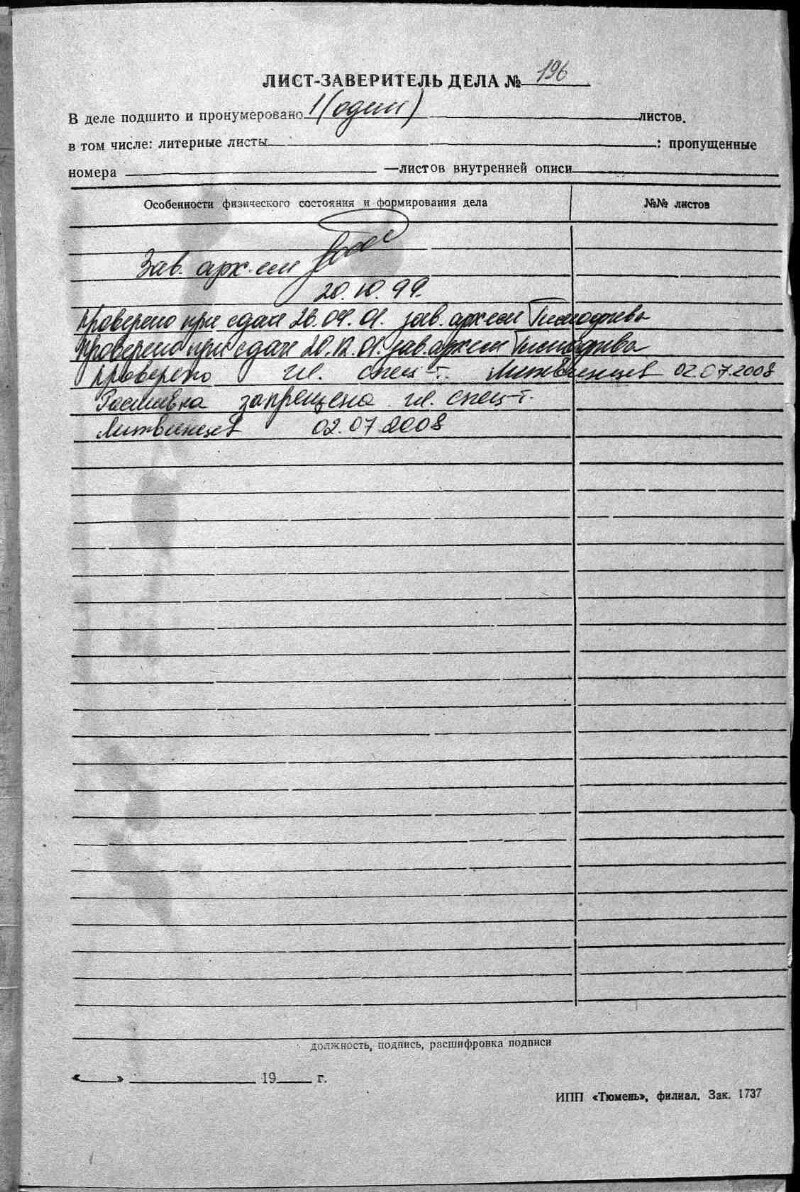 ЛИСТ-ЗАВЕРИТЕЛЬ ДЕЛА № 196
В деле подшито и пронумеровано 1 (один) листов.
в том числе: литерные листы ; пропущенные
номера —листов внутренней описи
Особенности физического состояния и формирования дела №№ листов
Зав. арх-ом
20.10.99.
Проверено при сдаче 28.09.01. зав. архивом Тимофеева
Проверено при сдаче 20.12.01. зав. архивом Тимофеева
Проверено гл. спец-т. Литвинцев 02.07.2008
Расшивка запрещена гл. спец-т.
Литвинцев 02.07.2008
должность, подпись, расшифровка подписи
« » 19 г.
ИПП «Тюмень», филиал. Зак. 1737